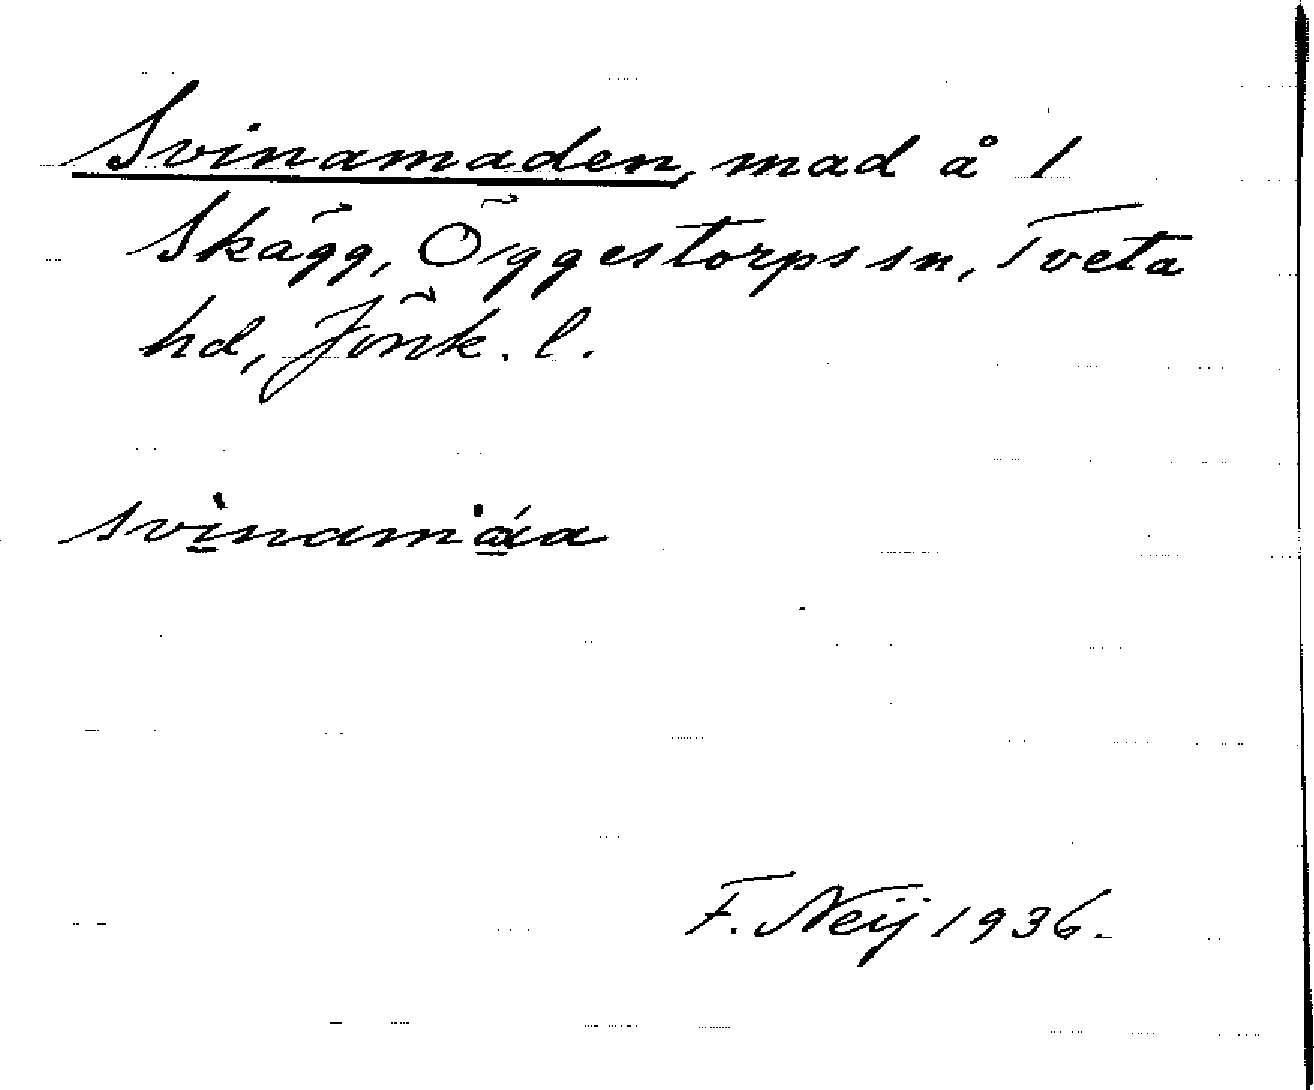 Svinamaden, mad å 1
Skägg, Öggestorps sn, Tveta
hd, Jönk. l.
svinamáa
F. Neij 1936.